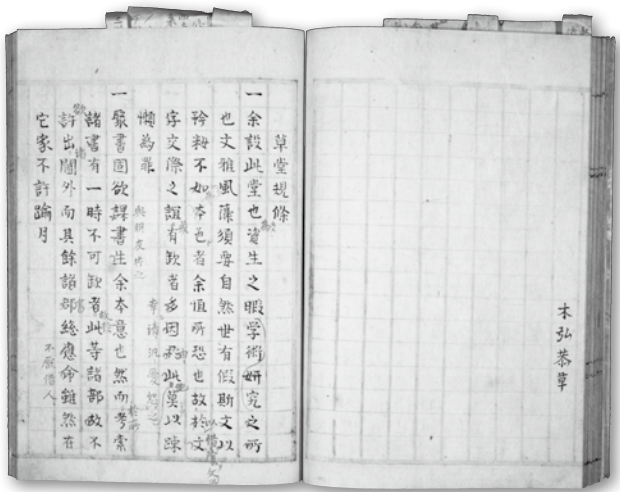 木弘恭草
草堂規條
一余設此堂也資生之暇学術妍究之所
也文雅風藻須要自然世有假斯文以
矜粧不如本色者余恒所恐也故於文
字交際之誼有缺者多因此莫以踈
懶為罪
幸請汎愛恕之
與朋友共之
一聚書固欲課書生余本意也然而考索
諸書有一時不可缺者此等諸部故不
許出閫外而其餘諸部總應命雖然在
它家不許踰月
不厭借人